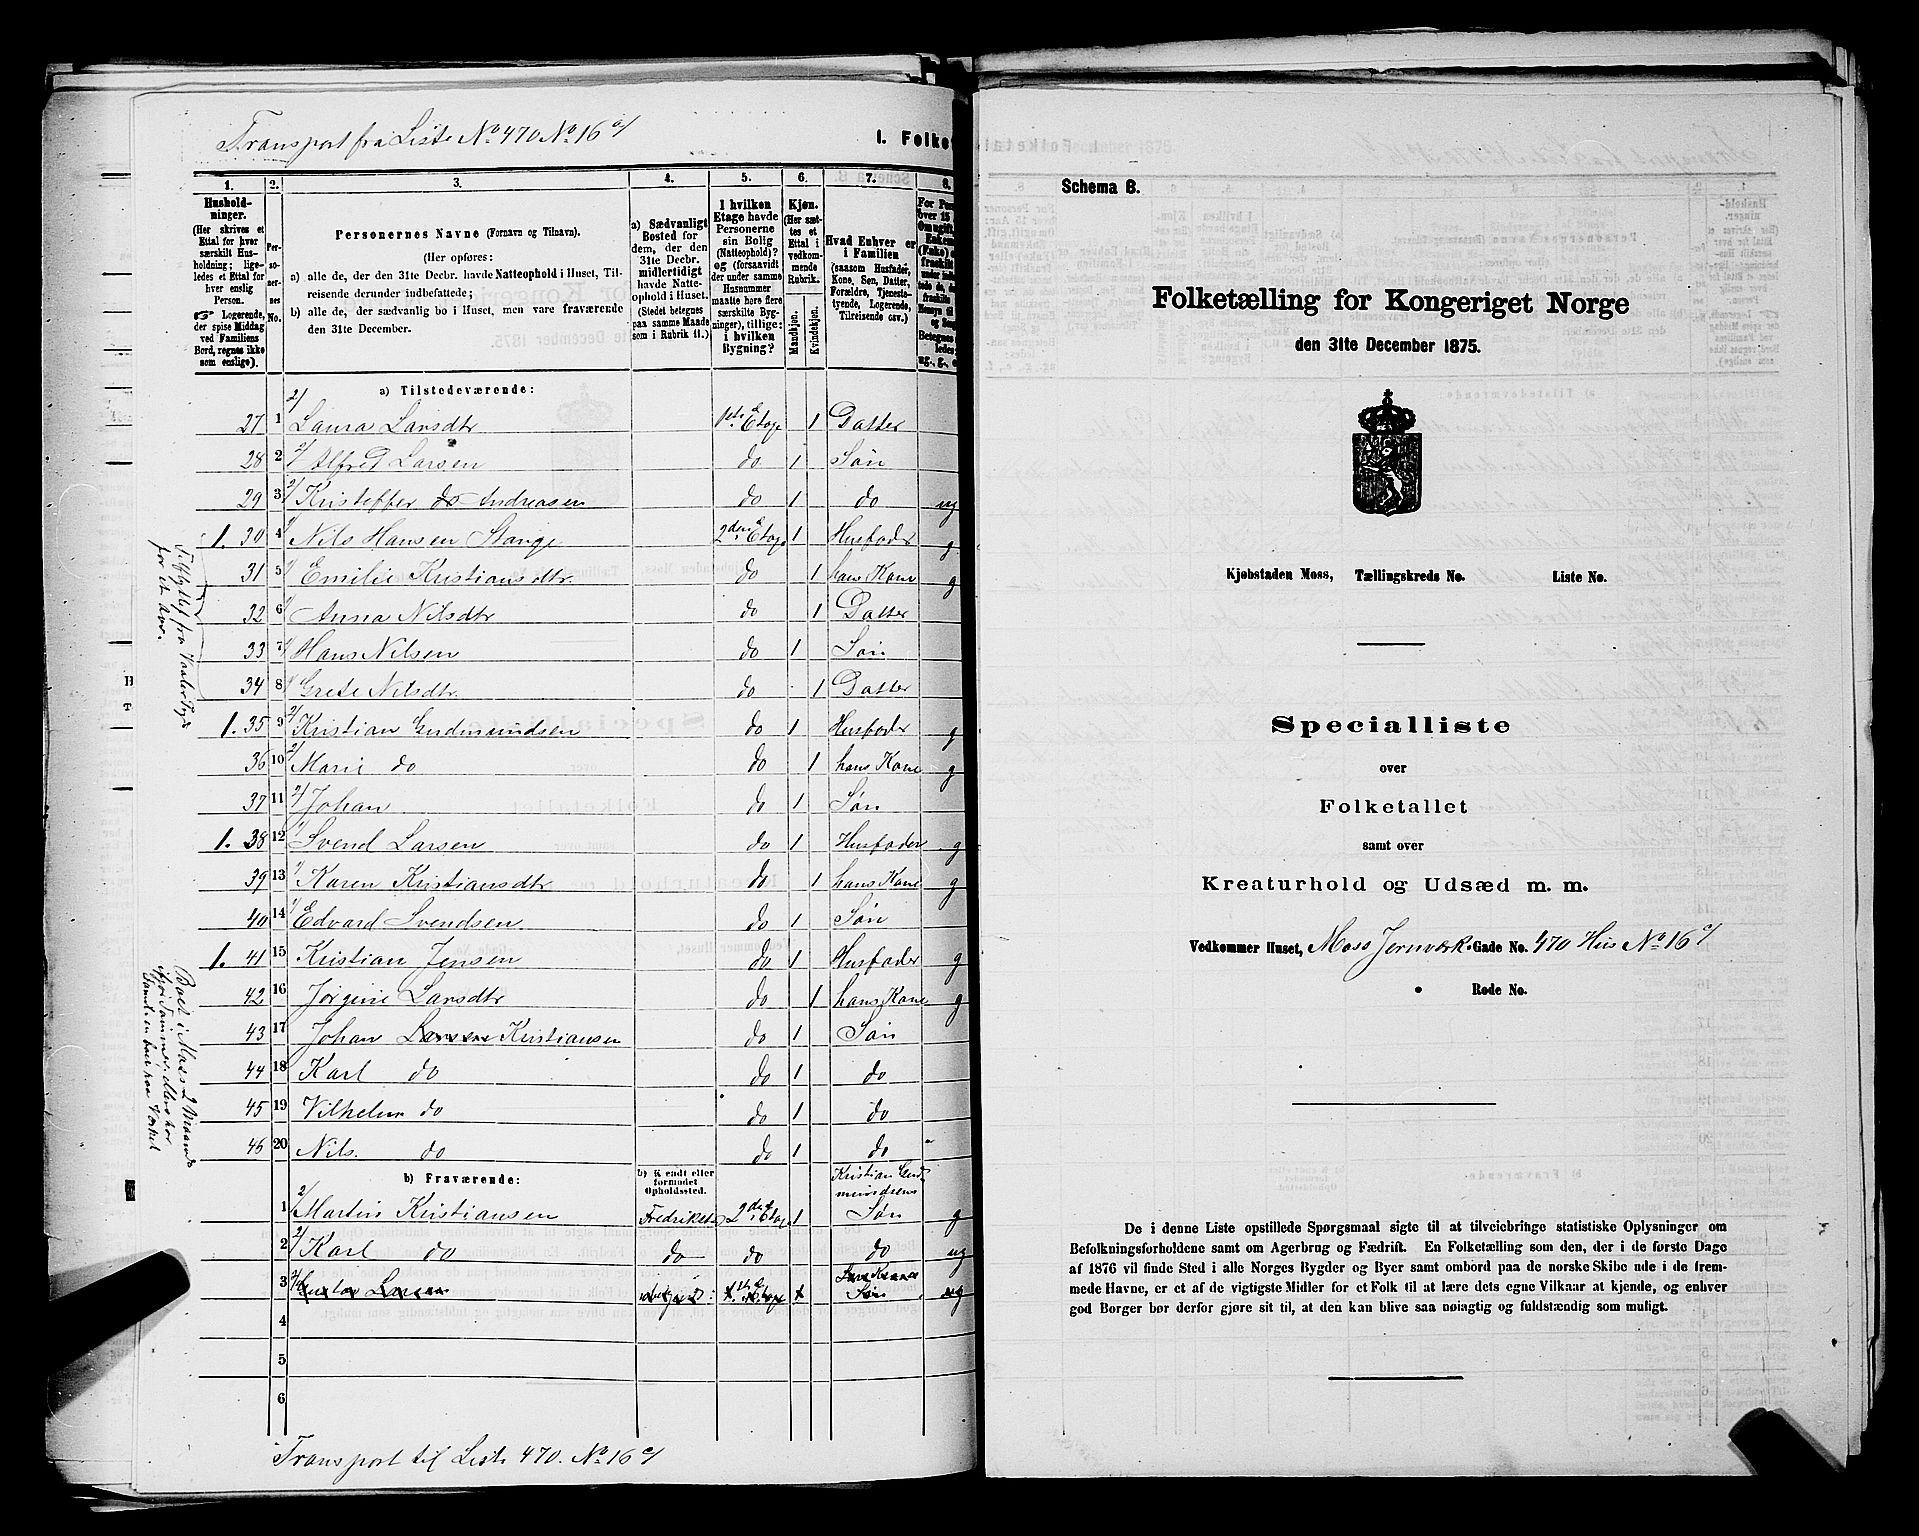 Transport fra Liste No 470 No 16 a/
I. Folket
1.
2.
3.
4.
5.
6.
7.
8.
Hushold-
ninger.
(Her skrives et
Ettal for hver
særskilt Hus-
holdning; lige-
ledes et Ettal for
hver enslig
Person.
☞ Logerende,
der spise Middag
ved Familiens
Bord, regnes ikke
som enslige).
Per-
so-
ner-
nes
No.
Personernes Navne (Fornavn og Tilnavn).
(Her opføres:
a) alle de, der den 31te Decbr. havde Natteophold i Huset, Til-
reisende derunder indbefattede;
b) alle de, der sædvanlig bo i Huset, men vare fraværende
den 31te December.
a) Sædvanligt
Bosted for
dem, der den
31te Decbr.
midlertidigt
havde Natte-
ophold i Huset.
(Stedet betegnes
paa samme Maade
som i Rubrik 11.)
I hvilken
Etage havde
Personerne
sin Bolig
(Natteophold)?
og (forsaavidt
der under samme
Husnummer
maatte høre flere
særskilte Byg-
ninger), tillige:
i hvilken
Bygning?
Kjøn.
(Her sæt-
tes et
Ettal i
vedkom-
mende
Rubrik.
Mandkjøn.
Kvindekjøn.
Hvad Enhver er
i Familien
(saasom Husfader,
Kone, Søn, Datter,
Forældre, Tjeneste-
tyende, Logerende,
Tilreisende osv.)
a) Tilstedeværende:
27 1 2/ Laura Larsdtr 1ste Etage 1 Datter
28 2 2/ Alfred Larsen do 1 Søn
29 3 2/ Kristoffer do Andreasen do 1 do ug
1. 30 4 1/ Nils Hansen Stange 2den Etage 1 Husfader g
31 5 1/ Emilie Kristiansdtr. do 1 hans Kone g
32 6 1/ Anna Nilsdtr do 1 Datter
33 7 1/ Hans Nilsen do 1 Søn
34 8 1/ Grete Nilsdtr. do 1 Datter
1. 35 9 2/ Kristian Gudmundsen do 1 Husfader g
36 10 2/ Marie do do 1 hans Kone g
37 11 2/ Johan do 1 Søn
1. 38 12 1/ Svend Larsen do 1 Husfader g
39 13 1/ Karen Kristiansdtr do 1 hans Kone g
40 14 1/ Edvard Svendsen do 1 Søn
1. 41 15 Kristian Jensen do 1 Husfader g
42 16 Jørgine Larsdtr do 1 hans Kone g
43 17 Johan Larsen Kristiansen do 1 Søn
44 18 Karl do do 1 do
45 19 Vilhelm do do 1 do
46 20 Nils. do do 1 do
b) Fraværende:
b) Kendt eller
formodet
Opholdssted.
Kristian Gud
mundsens
1 2/ Martin Kristiansen 2den Etage 1 Søn g
2 2/ Karl do do do do ug
3 2/ Gustav Larsen Søn ug
4
5
6
Transport til Liste 470. No 16 c/
for et Aar.
Schema B.
Folketælling for Kongeriget Norge
den 31te December 1875.
Kjøbstaden Moss, Tællingskreds No. Liste No.
Specialliste
over
Folketallet
samt over
Kreaturhold og Udsæd m. m.
Vedkommer Huset, Moss Jernværk Gade No. 470 Hus No 16 c/
Rode No.
De i denne Liste opstillede Spørgsmaal sigte til at tilveiebringe statistiske Oplysninger om
Befolkningsforholdene samt om Agerbrug og Fædrift. En Folketælling som den, der i de første Dage
af 1876 vil finde Sted i alle Norges Bygder og Byer samt ombord paa de norske Skibe ude i de frem-
mede Havne, er et af de vigtigste Midler for et Folk til at lære dets egne Vilkaar at kjende, og enhver
god Borger bør derfor gjøre sit til, at den kan blive saa nøiagtig og fuldstændig som muligt.